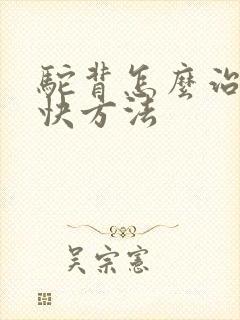 駝背怎麼治
快方法
吳宗憲